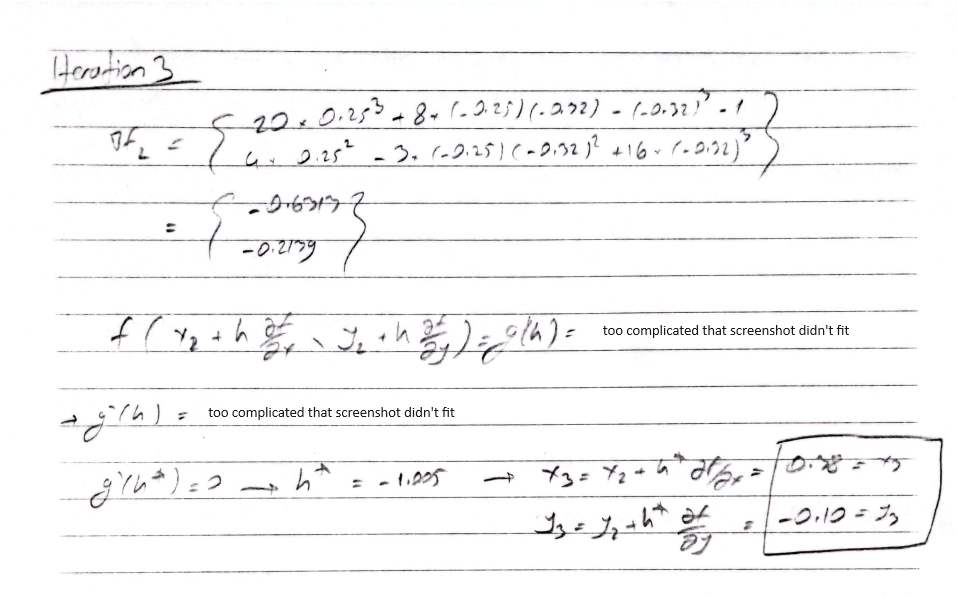 Iteration 3
∇f₂ = { 20 × 0.25³ + 8 × (-0.25)(-0.32) - (-0.32)³ - 1
4 × 0.25² - 3 × (-0.25)(-0.32)² + 16 × (-0.32)³ }
= { -0.6313
-0.2139 }
f ( x₂ + h ∂f/∂x , y₂ + h ∂f/∂y ) = g(h) = too complicated that screenshot didn't fit
→ g'(h) = too complicated that screenshot didn't fit
g'(h*) = 0 → h* = -1.005 → x₃ = x₂ + h* ∂f/∂x = 0.38 = x₃
y₃ = y₂ + h* ∂f/∂y = -0.10 = y₃